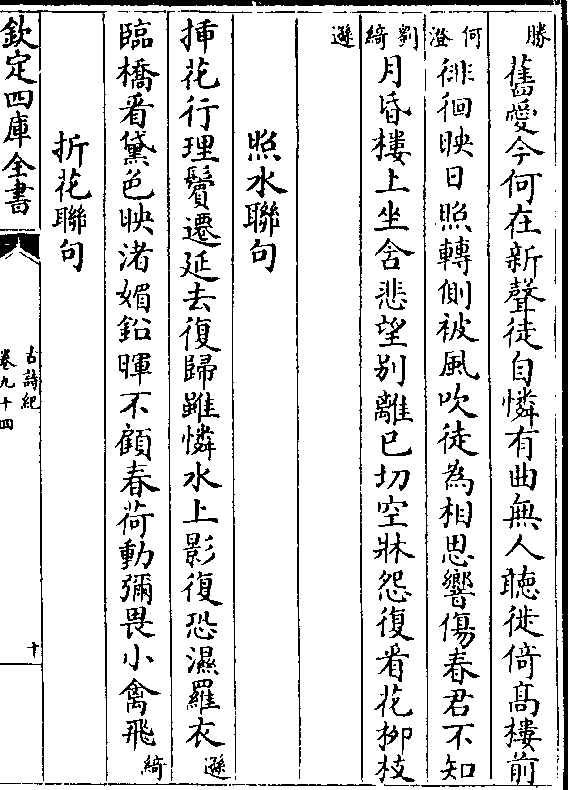 勝
舊愛今何在新聲徒自憐有曲無人聽徙倚高樓前
何澄
徘徊映日照轉側被風吹徒為相思響傷春君不知
劉綺
月昏樓上坐含悲望别離已切空牀怨復看花柳枝
遜
照水聯句
挿花行理鬢遷延去復歸雖憐水上影復恐濕羅衣 遜
臨橋看黛色映渚媚鉛暉不顧春荷動彌畏小禽飛 綺
折花聯句
欽定四庫全書
古詩紀
卷九十四
十